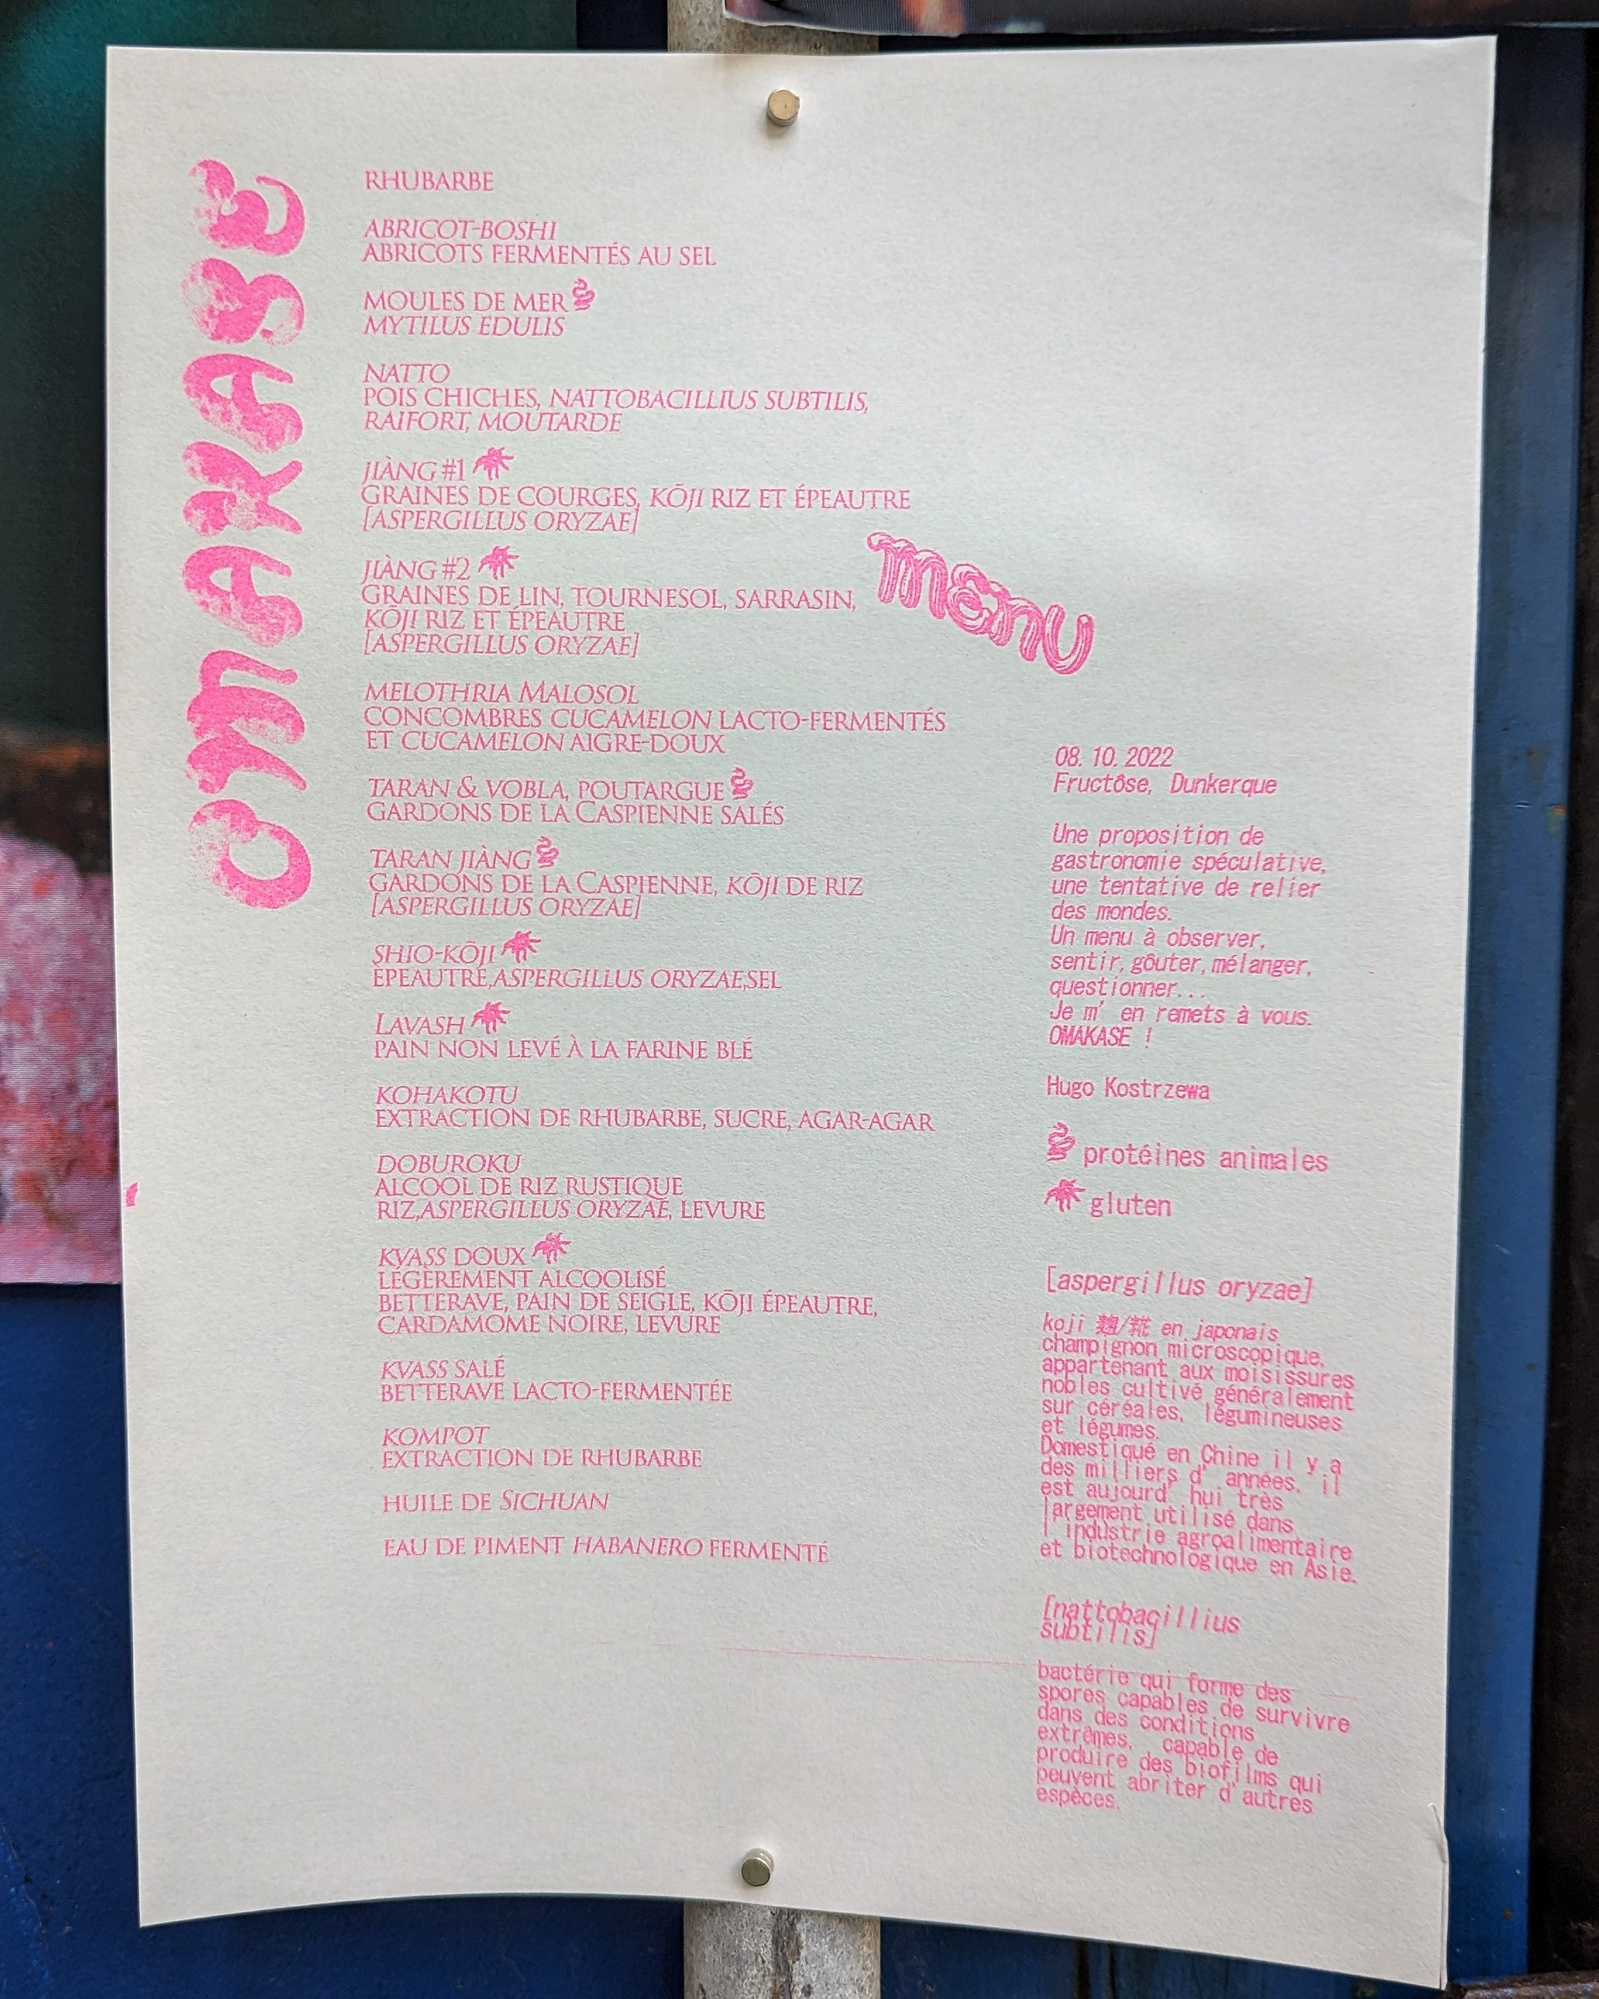 OMAKASE
RHUBARBE
ABRICOT-BOSHI
ABRICOTS FERMENTÉS AU SEL
MOULES DE MER
MYTILUS EDULIS
NATTO
POIS CHICHES, NATTOBACILLIUS SUBTILIS,
RAIFORT, MOUTARDE
JIÀNG #1
GRAINES DE COURGES, KŌJI RIZ ET ÉPEAUTRE
[ASPERGILLUS ORYZAE]
JIÀNG #2
GRAINES DE LIN, TOURNESOL, SARRASIN,
KŌJI RIZ ET ÉPEAUTRE
[ASPERGILLUS ORYZAE]
MELOTHRIA MALOSOL
CONCOMBRES CUCAMELON LACTO-FERMENTÉS
ET CUCAMELON AIGRE-DOUX
TARAN & VOBLA, POUTARGUE
GARDONS DE LA CASPIENNE SALÉS
TARAN JIÀNG
GARDONS DE LA CASPIENNE, KŌJI DE RIZ
[ASPERGILLUS ORYZAE]
SHIO-KŌJI
ÉPEAUTRE,ASPERGILLUS ORYZAE,SEL
LAVASH
PAIN NON LEVÉ À LA FARINE BLÉ
KOHAKOTU
EXTRACTION DE RHUBARBE, SUCRE, AGAR-AGAR
DOBUROKU
ALCOOL DE RIZ RUSTIQUE
RIZ,ASPERGILLUS ORYZAE, LEVURE
KVASS DOUX
LÉGÈREMENT ALCOOLISÉ
BETTERAVE, PAIN DE SEIGLE, KŌJI ÉPEAUTRE,
CARDAMOME NOIRE, LEVURE
KVASS SALÉ
BETTERAVE LACTO-FERMENTÉE
KOMPOT
EXTRACTION DE RHUBARBE
HUILE DE SICHUAN
EAU DE PIMENT HABANERO FERMENTÉ
menu
08.10.2022
Fructôse, Dunkerque
Une proposition de
gastronomie spéculative,
une tentative de relier
des mondes.
Un menu à observer,
sentir, goûter, mélanger,
questionner...
Je m' en remets à vous.
OMAKASE !
Hugo Kostrzewa
protéines animales
gluten
[aspergillus oryzae]
koji 麹/糀 en japonais
champignon microscopique,
appartenant aux moisissures
nobles cultivé généralement
sur céréales, légumineuses
et légumes.
Domestiqué en Chine il y a
des milliers d' années, il
est aujourd' hui très
largement utilisé dans
l' industrie agroalimentaire
et biotechnologique en Asie.
[nattobacillius
subtilis]
bactérie qui forme des
spores capables de survivre
dans des conditions
extrêmes, capable de
produire des biofilms qui
peuvent abriter d' autres
espèces.